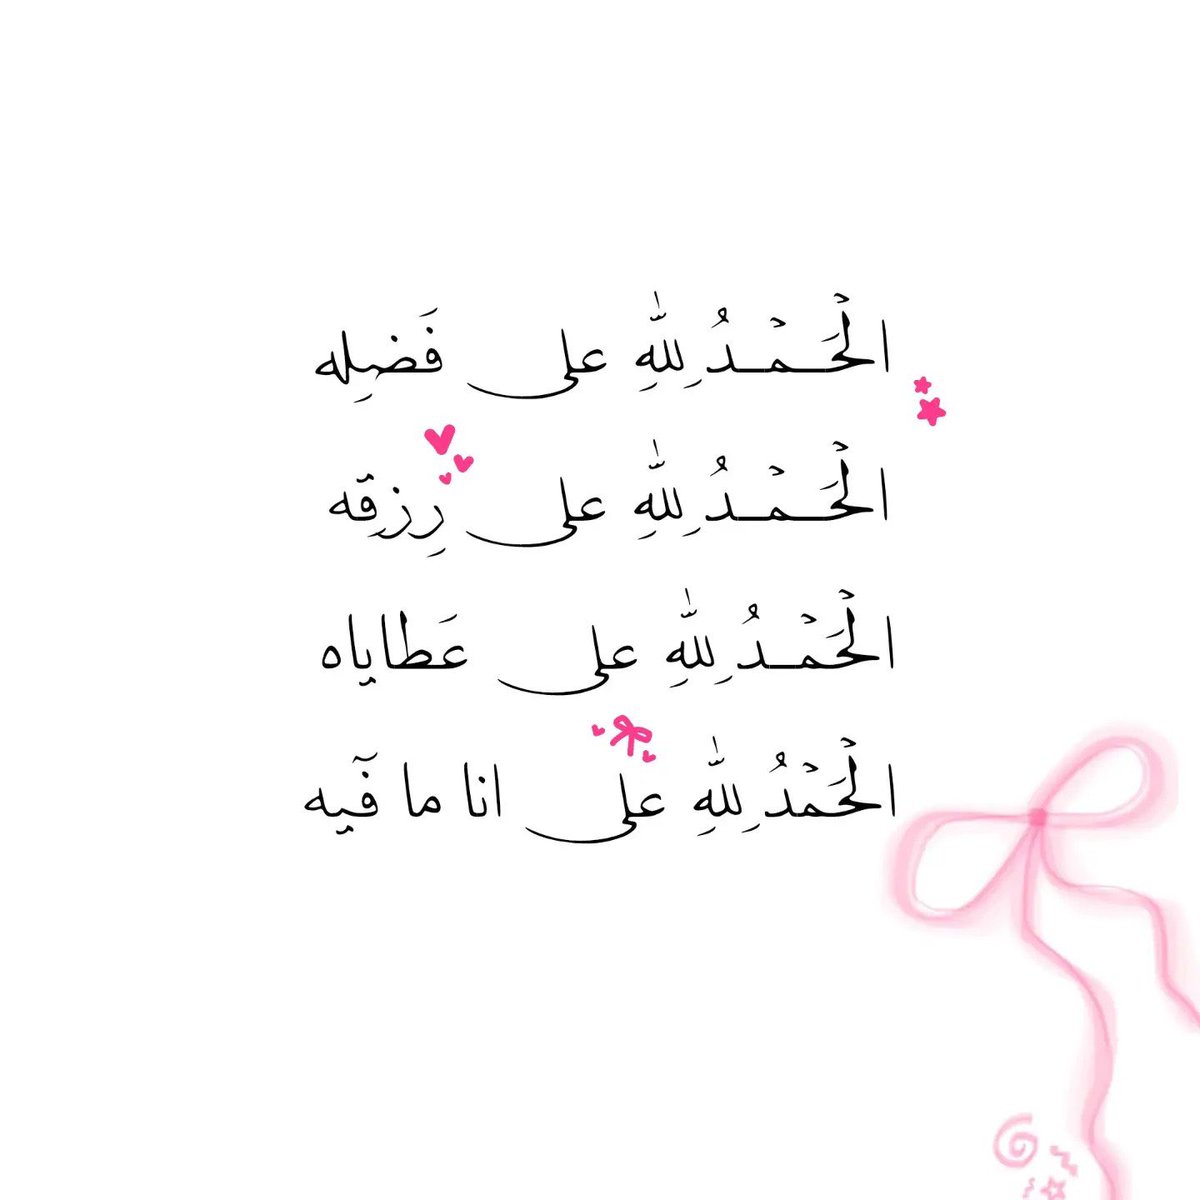 الْحَمْدُ لِلَّهِ على فَضلِه
الْحَمْدُ لِلَّهِ على رِزقِه
الْحَمْدُ لِلَّهِ على عَطاياه
الْحَمْدُ لِلَّهِ على انا ما فَيه